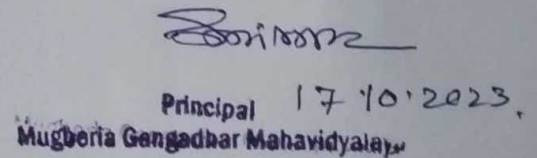 Principal 17.10.2023.
Mugberia Gangadhar Mahavidyalaya